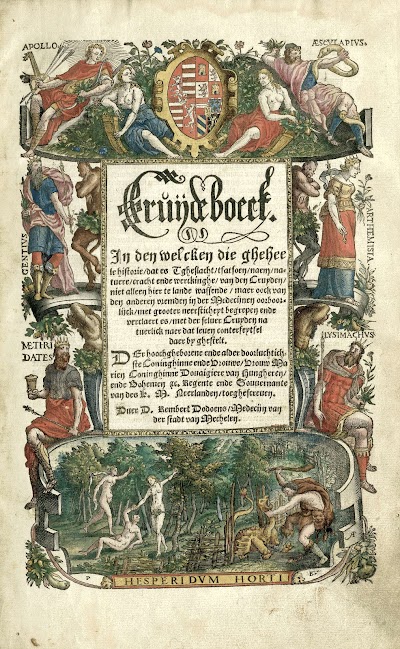 APOLLO.
ÆSCULAPIUS.
Cruijdeboeck.
In den welcken die ghehee
le historie/ dat es Tgheslacht/ tfatsoen/ naem/ na-
tuere/ cracht ende werckinghe/ van den Cruyden/
niet alleen hier te lande wassende/ maer oock van
den anderen vremden in der Medecijnen oorboor-
lijck/ met grooter neersticheyt begrepen ende
verclaert es/ met der seluer Cruyden na-
tuerlick naer dat leuen conterfeytsel
daer by ghestelt.
GENTIUS
ARTHEMISIA
MITHRI
DATES
LYSIMACHUS
Der hoochgheborene ende alder doorluchtich-
ste Coninghinne ende Vrouwe/ Vrouw Ma
rien Coninghinne Douaigiere van Hungheren/
ende Bohemen ꝛc. Regente ende Gouuernante
van des k. M. Neerlanden/ toegheschreuen.
Duer D. Rembert Dodoens/ Medecijn van
der stadt van Mechelen.
P
HESPERIDVM HORTI